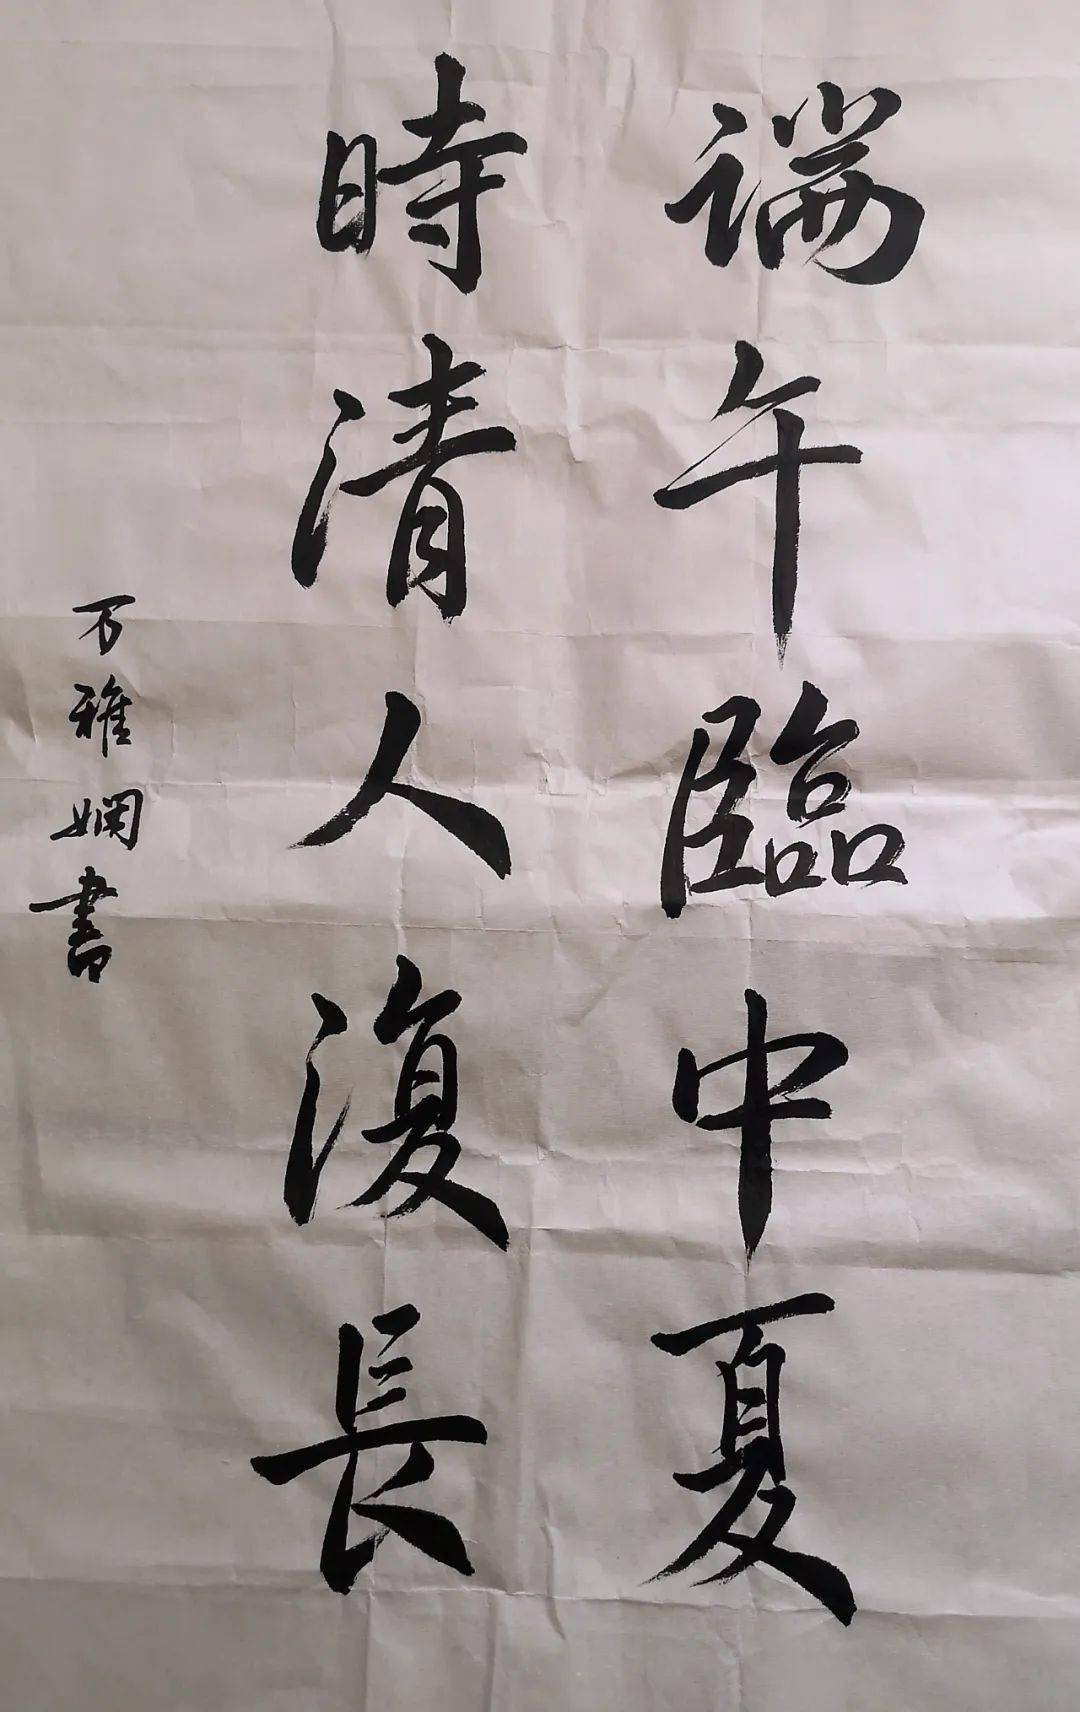 端午臨中夏
時清人復長
万雅嫻書